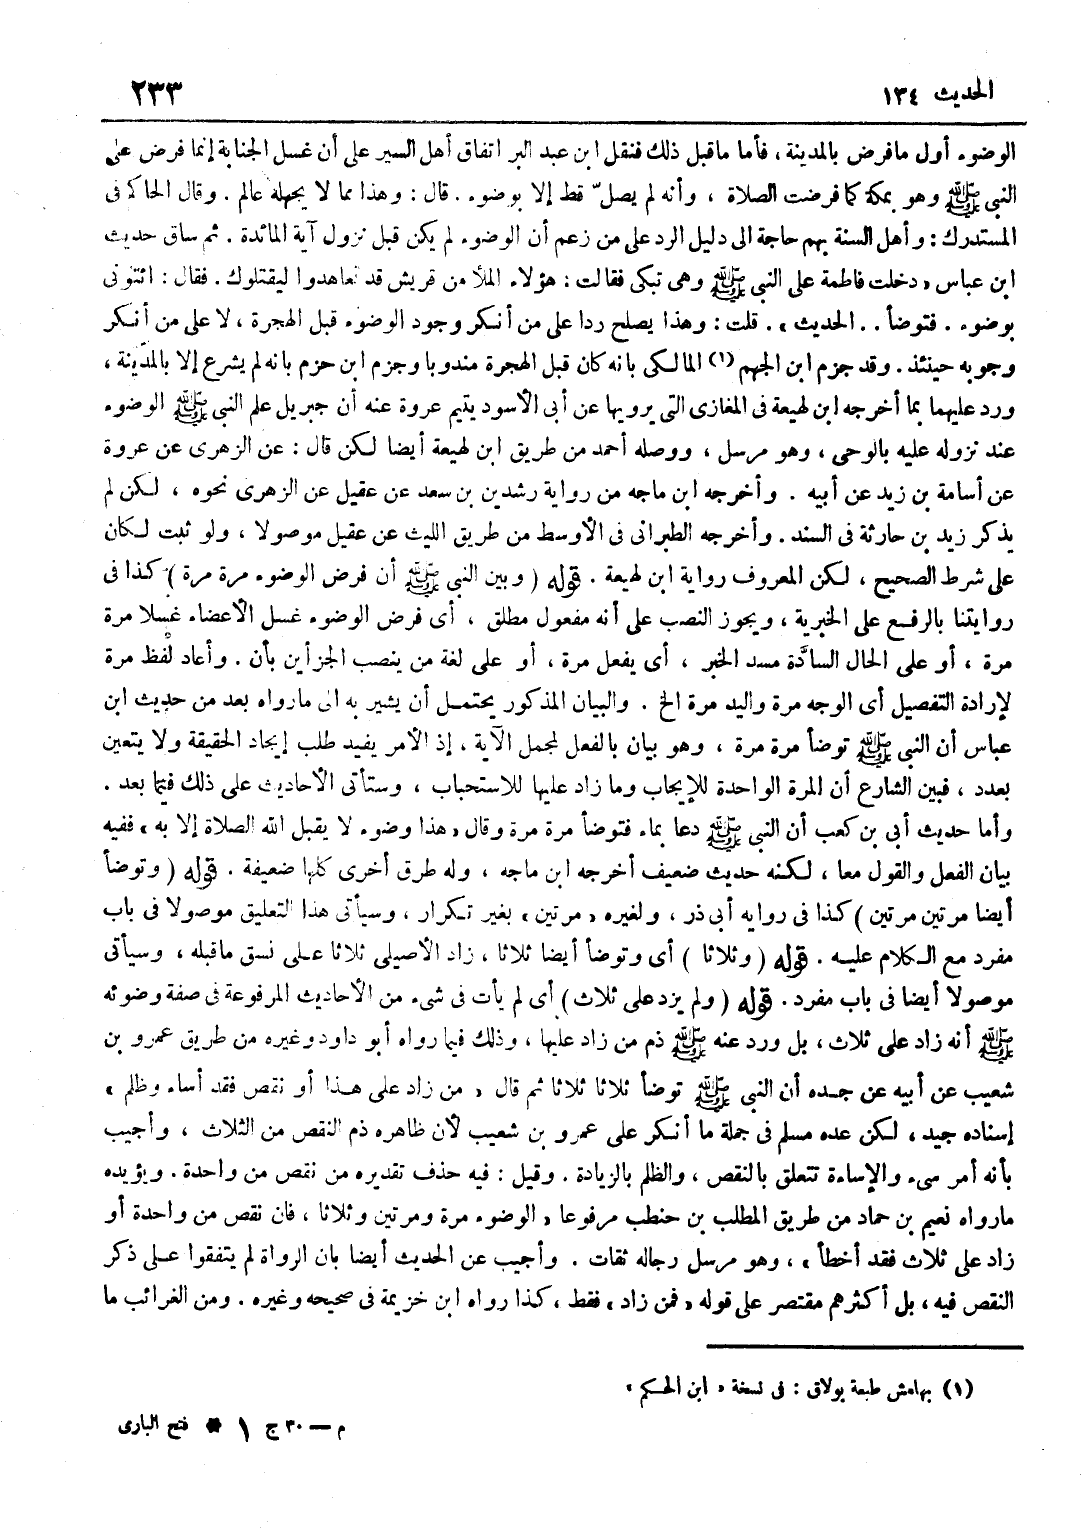 الحديث ١٣٤
٢٣٣
الوضوء أول ما فرض بالمدينة ، فأما ما قبل ذلك فنقل ابن عبد البر اتفاق أهل السير على أن غسل الجنابة إنما فرض على
النبي ﷺ وهو بمكة كما فرضت الصلاة ، وأنه لم يصلّ قط إلا بوضوء . قال : وهذا مما لا يجهله عالم . وقال الحاكم فى
المستدرك : وأهل السنة بهم حاجة الى دليل الرد على من زعم أن الوضوء لم يكن قبل نزول آية المائدة . ثم ساق حديث
ابن عباس « دخلت فاطمة على النبي ﷺ وهى تبكى فقالت : هؤلاء الملأ من قريش قد تعاهدوا ليقتلوك . فقال : ائتونى
بوضوء . فتوضأ . . الحديث » . قلت : وهذا يصلح ردا على من أنكر وجود الوضوء قبل الهجرة ، لا على من أنكر
وجوبه حينئذ . وقد جزم ابن الجهم (١) المالكى بانه كان قبل الهجرة مندوبا وجزم ابن حزم بانه لم يشرع إلا بالمدينة ،
ورد عليهما بما أخرجه ابن لهيعة فى المغازى التى يرويها عن أبى الأسود يتيم عروة عنه أن جبريل علم النبى ﷺ الوضوء
عند نزوله عليه بالوحى ، وهو مرسل ، ووصله أحمد من طريق ابن لهيعة أيضا لكن قال : عن الزهرى عن عروة
عن أسامة بن زيد عن أبيه . وأخرجه ابن ماجه من رواية رشدين بن سعد عن عقيل عن الزهرى نحوه ، لكن لم
يذكر زيد بن حارثة فى السند . وأخرجه الطبرانى فى الأوسط من طريق الليث عن عقيل موصولا ، ولو ثبت لكان
على شرط الصحيح ، لكن المعروف رواية ابن لهيعة . قوله ( وبين النبى ﷺ أن فرض الوضوء مرة مرة ) كذا فى
روايتنا بالرفع على الخبرية ، ويجوز النصب على أنه مفعول مطلق ، أى فرض الوضوء غسل الأعضاء غسلا مرة
مرة ، أو على الحال السادَّة مسد الخبر ، أى يفعل مرة ، أو على لغة من ينصب الجزأين بأن . وأعاد لفظ مرة
لإرادة التفصيل أى الوجه مرة واليد مرة الخ . والبيان المذكور يحتمل أن يشير به الى مارواه بعد من حديث ابن
عباس أن النبى ﷺ توضأ مرة مرة ، وهو بيان بالفعل لمجمل الآية ، إذ الأمر يفيد طلب إيجاد الحقيقة ولا يتعين
بعدد ، فبين الشارع أن المرة الواحدة للإيجاب وما زاد عليها للاستحباب ، وستأتى الأحاديث على ذلك فيما بعد .
وأما حديث أبى بن كعب أن النبى ﷺ دعا بماء فتوضأ مرة مرة وقال « هذا وضوء لا يقبل الله الصلاة إلا به » ففيه
بيان الفعل والقول معا ، لكنه حديث ضعيف أخرجه ابن ماجه ، وله طرق أخرى كلها ضعيفة . قوله ( وتوضأ
أيضا مرتين مرتين ) كذا فى رواية أبى ذر ، ولغيره « مرتين » بغير تكرار ، وسيأتى هذا التعليق موصولا فى باب
مفرد مع الكلام عليه . قوله ( وثلاثا ) أى وتوضأ أيضا ثلاثا ، زاد الأصيلى ثلاثا على نسق ماقبله ، وسيأتى
موصولا أيضا فى باب مفرد . قوله ( ولم يزد على ثلاث ) أى لم يأت فى شىء من الأحاديث المرفوعة فى صفة وضوئه
ﷺ أنه زاد على ثلاث ، بل ورد عنه ﷺ ذم من زاد عليها ، وذلك فيما رواه أبو داود وغيره من طريق عمرو بن
شعيب عن أبيه عن جده أن النبى ﷺ توضأ ثلاثا ثلاثا ثم قال « من زاد على هذا أو نقص فقد أساء وظلم »
إسناده جيد ، لكن عده مسلم فى جملة ما أنكر على عمرو بن شعيب لأن ظاهره ذم النقص من الثلاث ، وأجيب
بأنه أمر سىء والإساءة تتعلق بالنقص ، والظلم بالزيادة . وقيل : فيه حذف تقديره من نقص من واحدة . ويؤيده
مارواه نعيم بن حماد من طريق المطلب بن حنطب مرفوعا « الوضوء مرة ومرتين وثلاثا ، فان نقص من واحدة أو
زاد على ثلاث فقد أخطأ » ، وهو مرسل رجاله ثقات . وأجيب عن الحديث أيضا بان الرواة لم يتفقوا على ذكر
النقص فيه ، بل أكثرهم مقتصر على قوله « فمن زاد » فقط ، كذا رواه ابن خزيمة فى صحيحه وغيره . ومن الغرائب ما
(١) بهامش طبعة بولاق : فى نسخة « ابن الحكم »
م — ٣٠ ج ١ * فتح البارى